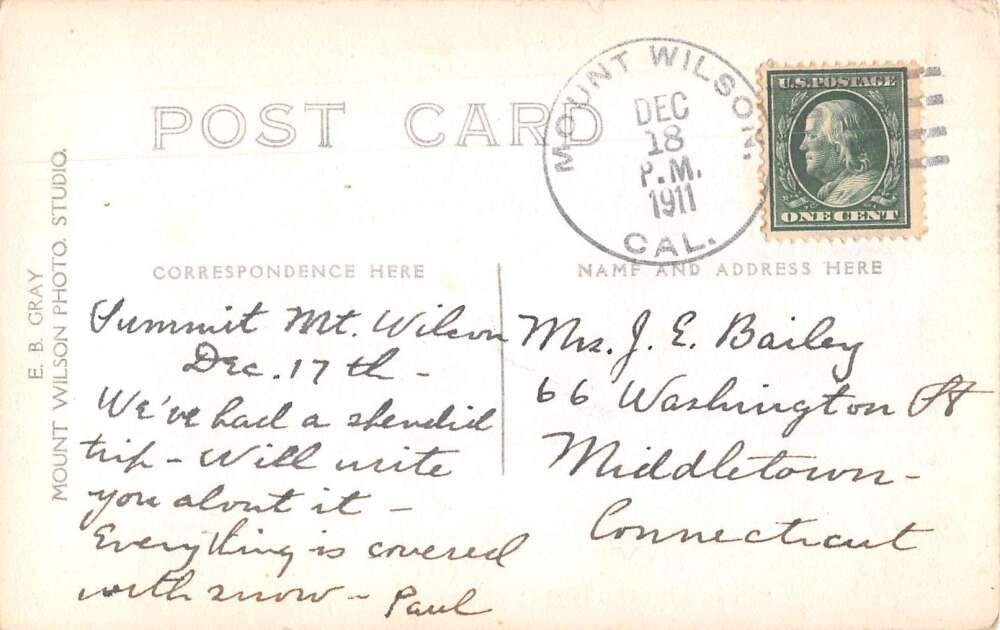 POST CARD
MOUNT WILSON,
DEC
18
P.M.
1911
CAL.
U.S. POSTAGE
ONE CENT
E. B. GRAY
MOUNT WILSON PHOTO. STUDIO.
CORRESPONDENCE HERE
Summit Mt. Wilson
Dec. 17th -
We've had a splendid
trip - Will write
you about it -
Everything is covered
with snow - Paul
NAME AND ADDRESS HERE
Mrs. J. E. Bailey
66 Washington St
Middletown -
Connecticut